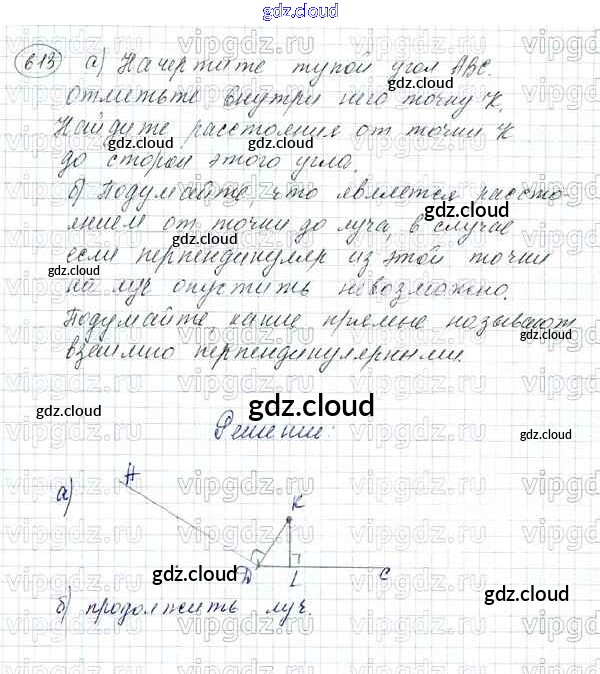 gdz.cloud
613 а) Начертите тупой угол ABC.
отметьте внутри него точку K.
Найдите расстояния от точки K
до сторон этого угла.
б) Подумайте, что является рассто-
янием от точки до луча, в случае
если перпендикуляр из этой точки
на луч опустить невозможно.
Подумайте, какие прямые называют
взаимно перпендикулярными.
gdz.cloud
Решение:
а)
A K
D L C
б) продолжить луч.